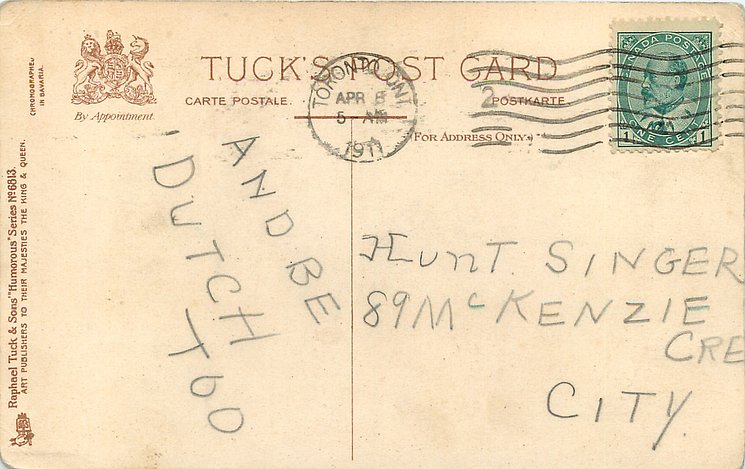 TUCK'S POST CARD
CARTE POSTALE.
POSTKARTE.
(FOR ADDRESS ONLY.)
By Appointment.
CHROMOGRAPHED
IN BAVARIA.
Raphael Tuck & Sons' "Humorous" Series No 6813.
ART PUBLISHERS TO THEIR MAJESTIES THE KING & QUEEN.
TORONTO, ONT.
APR 5
5 AM
1911
2
CANADA POSTAGE
1 ONE CENT 1
AND BE
DUTCH
TOO
HUNT SINGER
89 McKENZIE
CRE
CITY.